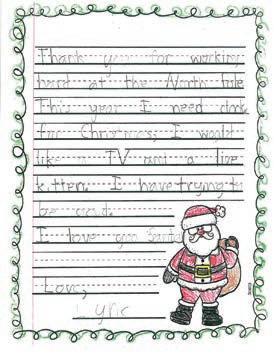 Thank you for working
hard at the North Pole
This year I need
for Christmas, I would
like a TV and a live
kitten. I have trying to
be good.
I love you Santa
Love,
Lyric